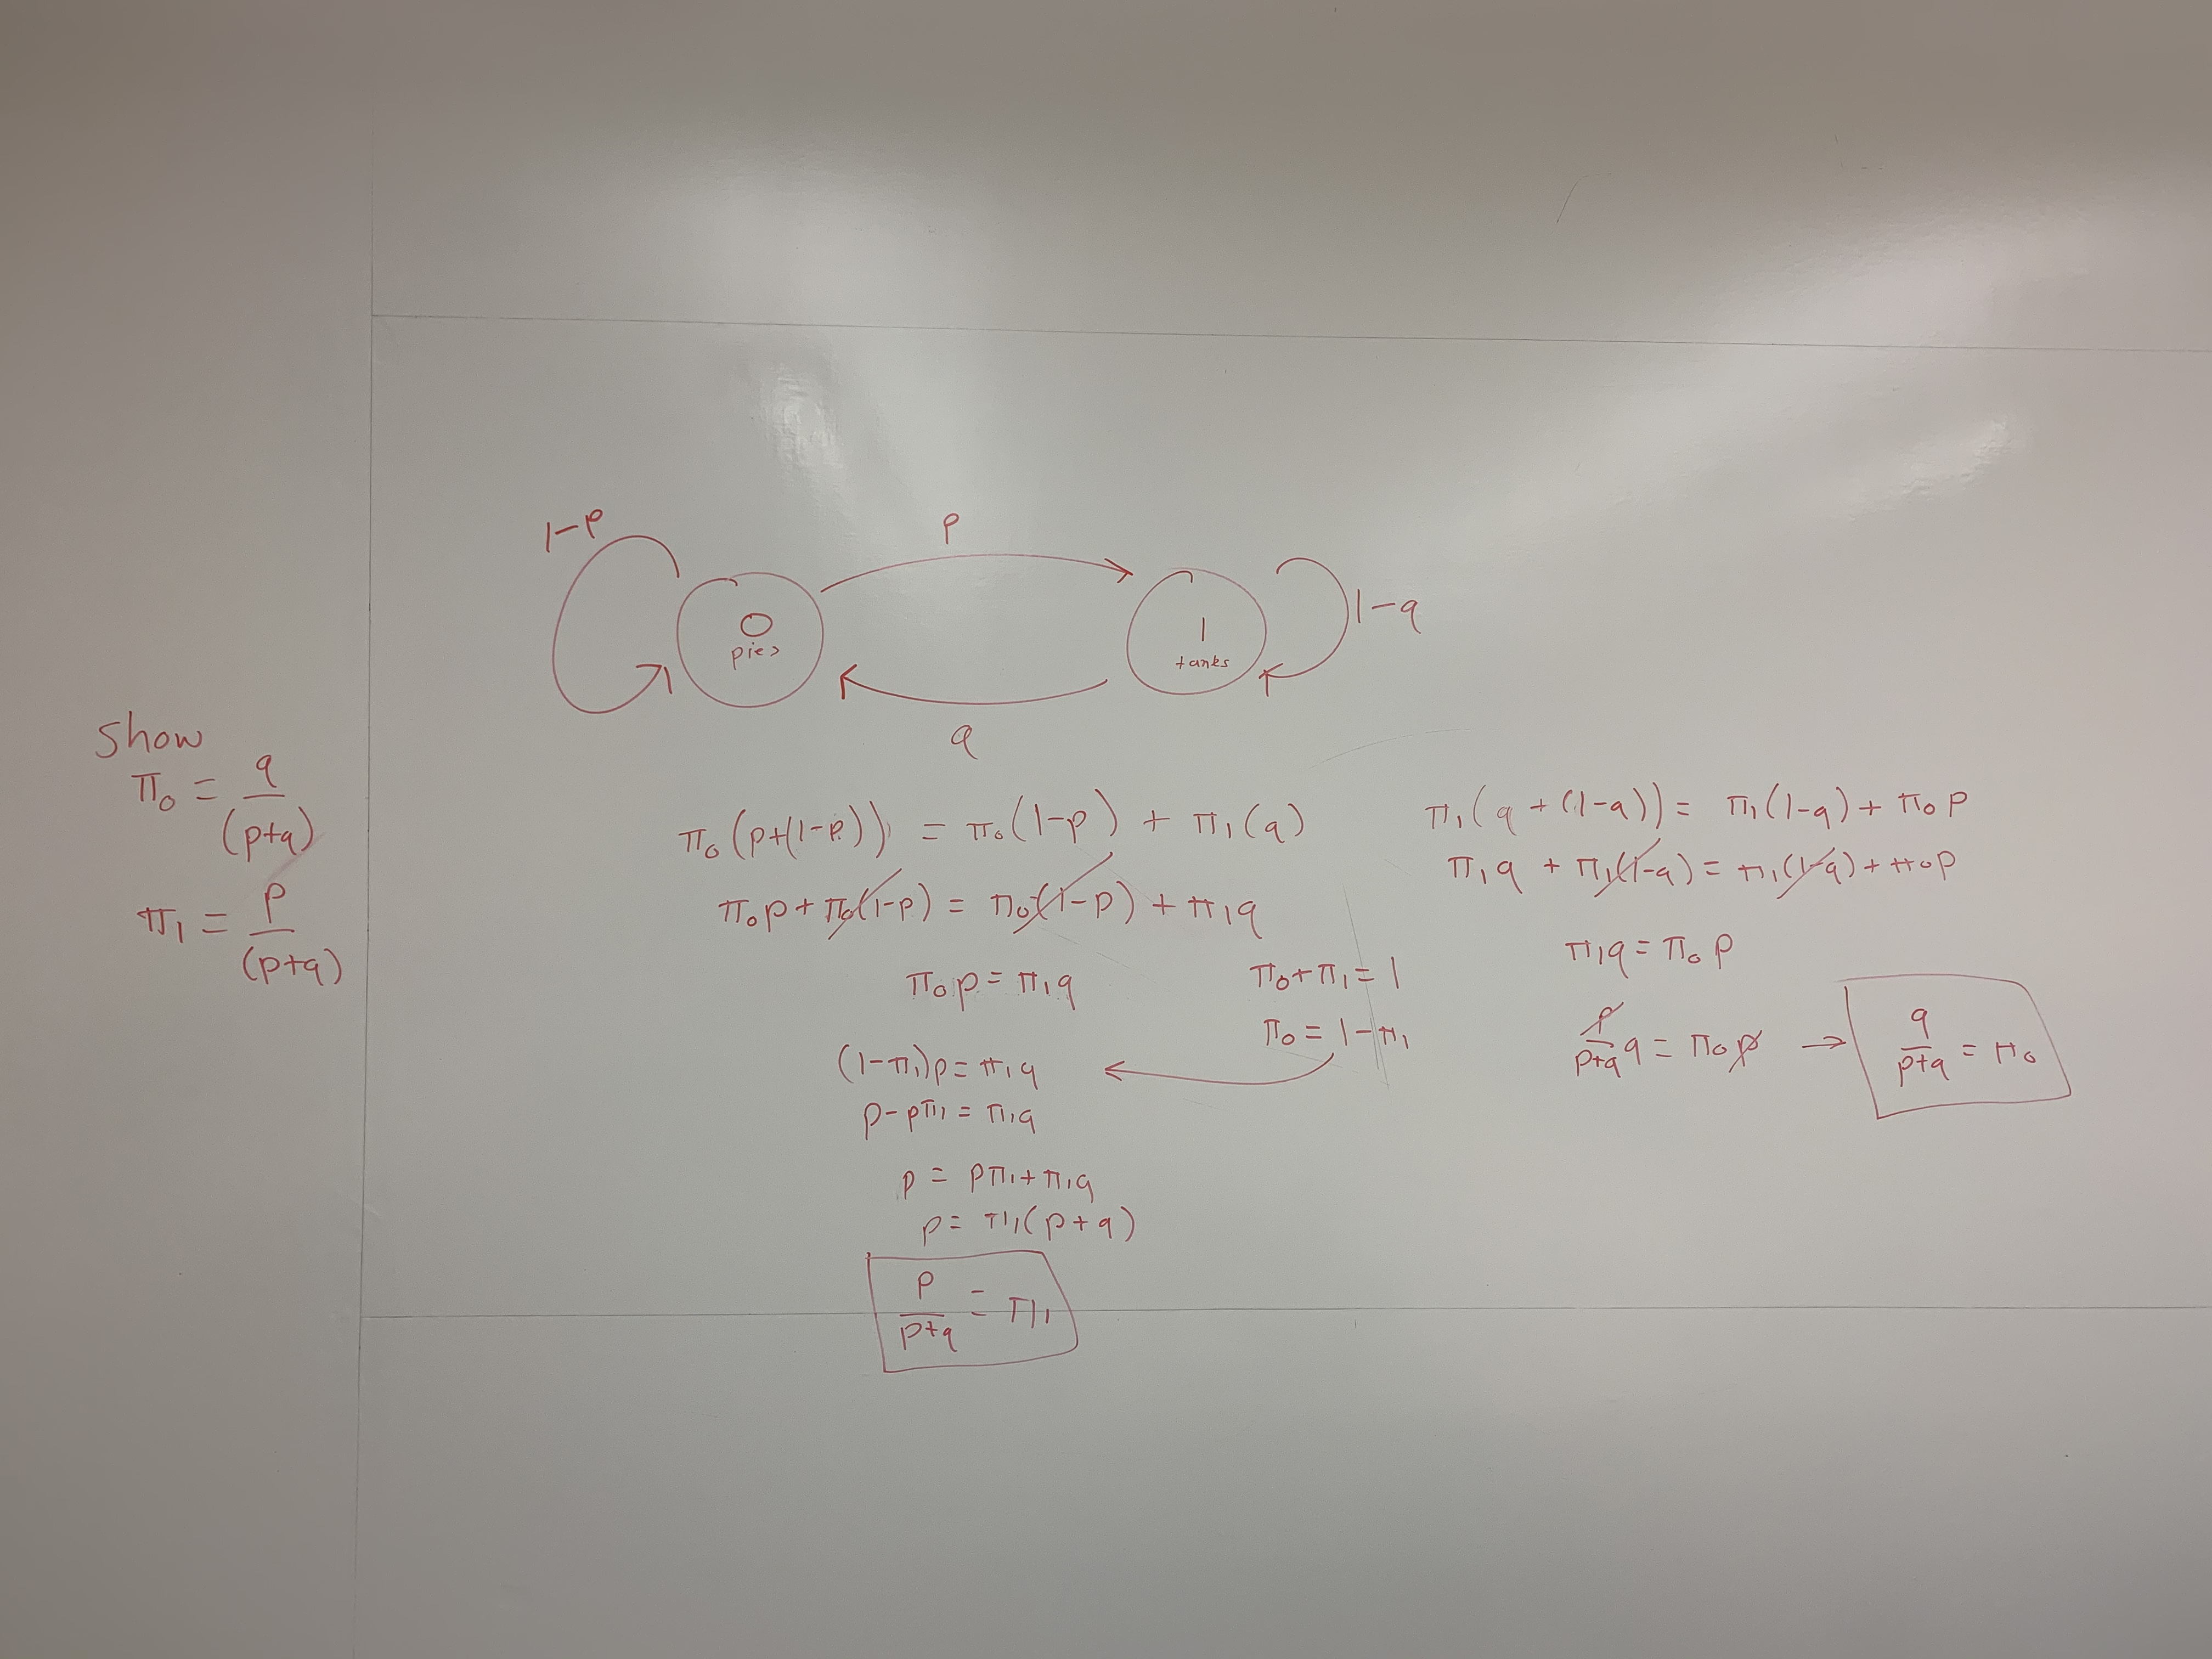 1-p
p
0
pies
1
tanks
1-q
q
show
π₀ = q/(p+q)
π₁ = p/(p+q)
π₀(p+(1-p)) = π₀(1-p) + π₁(q)
π₀p + π₀(1-p) = π₀(1-p) + π₁q
π₀p = π₁q
π₀+π₁ = 1
π₀ = 1-π₁
(1-π₁)p = π₁q
p-pπ₁ = π₁q
p = pπ₁+π₁q
p = π₁(p+q)
p/p+q = π₁
π₁(q + (1-q)) = π₁(1-q) + π₀p
π₁q + π₁(1-q) = π₁(1-q) + π₀p
π₁q = π₀p
p/p+q q = π₀p → q/p+q = π₀